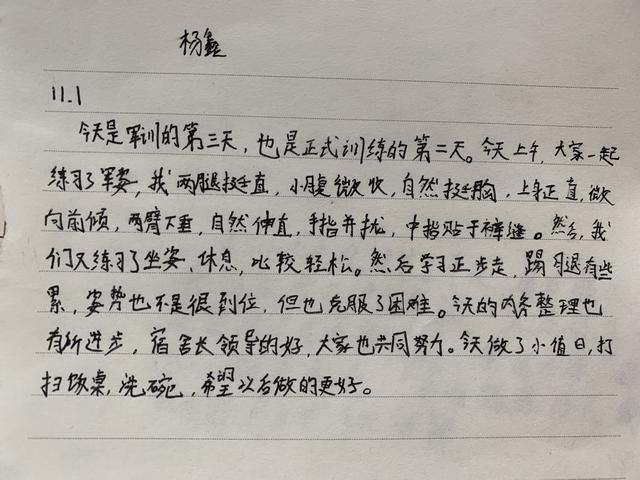 杨鑫
11.1
今天是军训的第三天，也是正式训练的第二天。今天上午，大家一起
练习了军姿，我两腿挺直，小腹微收，自然挺胸，上身正直，微
向前倾，两臂下垂，自然伸直，手指并拢，中指贴于裤缝。然后，我
们又练习了坐姿、休息，比较轻松。然后学习正步走，踢腿有些
累，姿势也不是很到位，但也克服了困难。今天的内务整理也
有所进步，宿舍长领导的好，大家也共同努力。今天做了小值日，打
扫饭桌，洗碗，希望以后做的更好。